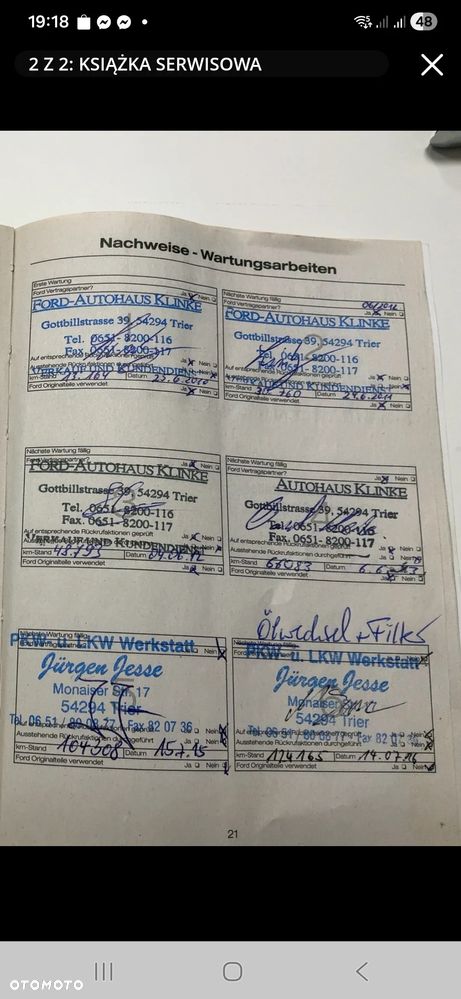 19:18
48
2 Z 2: KSIĄŻKA SERWISOWA
Nachweise - Wartungsarbeiten
Erste Wartung
Ford Vertragspartner? Ja Nein
FORD-AUTOHAUS KLINKE
Gottbillstrasse 39, 54294 Trier
Tel. 0651-8200-116
Fax. 0651-8200-117
Ja Nein
VERKAUF UND KUNDENDIENST
km-Stand Datum 23.6.2010
Ford Originalteile verwendet Ja Nein
Nächste Wartung fällig
Ford Vertragspartner? Ja Nein
FORD-AUTOHAUS KLINKE
Gottbillstrasse 39, 54294 Trier
Tel. 0651-8200-116
Fax. 0651-8200-117
Ja Nein
km-Stand Datum 24.6.2011
Ford Originalteile verwendet Ja Nein
Nächste Wartung fällig
Ford Vertragspartner? Ja Nein
FORD-AUTOHAUS KLINKE
Gottbillstrasse 39, 54294 Trier
Tel. 0651-8200-116
Fax. 0651-8200-117
Auf entsprechende Rückrufaktionen geprüft Ja Nein
VERKAUF UND KUNDENDIENST
km-Stand 48.193 Datum
Ford Originalteile verwendet Ja Nein
Nächste Wartung fällig
Ford Vertragspartner? Ja Nein
AUTOHAUS KLINKE
Gottbillstrasse 39, 54294 Trier
Tel. 0651-8200-116
Fax. 0651-8200-117
Auf entsprechende Rückrufaktionen geprüft Ja Nein
Ausstehende Rückrufaktionen durchgeführt Ja Nein
km-Stand Datum
Ford Originalteile verwendet Ja Nein
Nächste Wartung fällig
PKW- u. LKW Werkstatt
Jürgen Jesse
Monaiser Str. 17
54294 Trier
Tel. 06 51 / 89 08 77 Fax 82 07 36
Ausstehende Rückrufaktionen durchgeführt Ja Nein
km-Stand 104308 Datum 15.7.15
Ford Originalteile verwendet Ja Nein
Ölwechsel + Filter
PKW- u. LKW Werkstatt
Jürgen Jesse
Monaiser
54294 Trier
Tel. 06 51 / 89 08 77 Fax 82 07 36
Ausstehende Rückrufaktionen durchgeführt Ja Nein
km-Stand 124165 Datum 14.07.16
Ford Originalteile verwendet Ja Nein
21
OTOMOTO